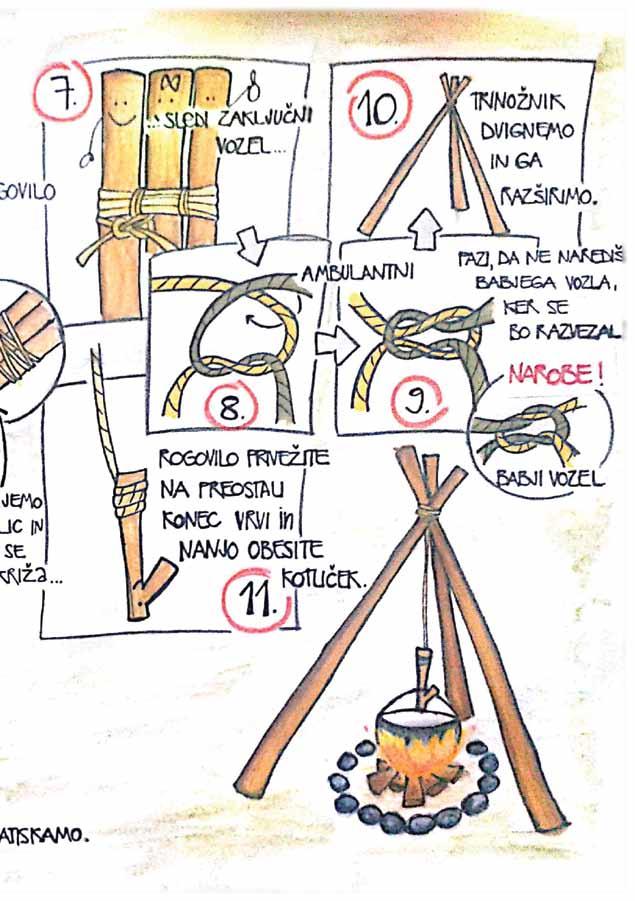 7.
...SLEDI ZAKLJUČNI
VOZEL...
10.
TRINOŽNIK
DVIGNEMO
IN GA
RAZŠIRIMO.
GOVILO
AMBULANTNI
8.
PAZI, DA NE NAREDIŠ
BABJEGA VOZLA,
KER SE
BO RAZVEZAL
9.
NAROBE!
BABJI VOZEL
JEMO
LIC IN
SE
KRIŽA...
ROGOVILO PRIVEŽITE
NA PREOSTALI
KONEC VRVI in
NANJO OBESITE
KOTLIČEK.
11.
ATISKAMO.